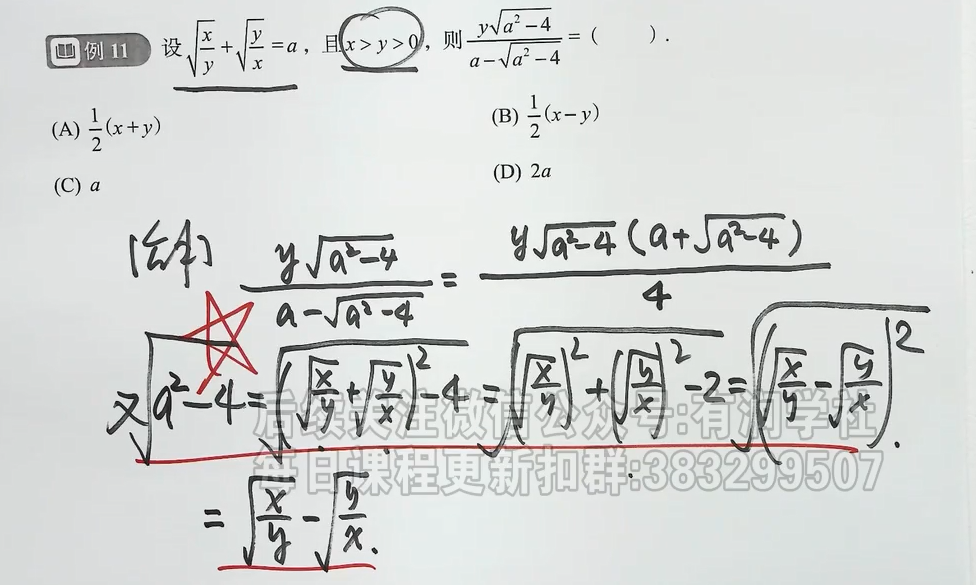 例 11 设 √(x/y) + √(y/x) = a，且 x > y > 0，则 y√(a²-4) / (a-√(a²-4)) = (    ).
(A) 1/2 (x+y)    (B) 1/2 (x-y)
(C) a    (D) 2a
y√(a²-4) / (a-√(a²-4)) = y√(a²-4) (a+√(a²-4)) / 4
又 √(a²-4) = √((√(x/y) + √(y/x))² - 4) = √((√(x/y))² + (√(y/x))² - 2) = √((√(x/y) - √(y/x))²).
后续关注微信公众号:有河学社
每日课程更新扣群:383299507
= √(x/y) - √(y/x).